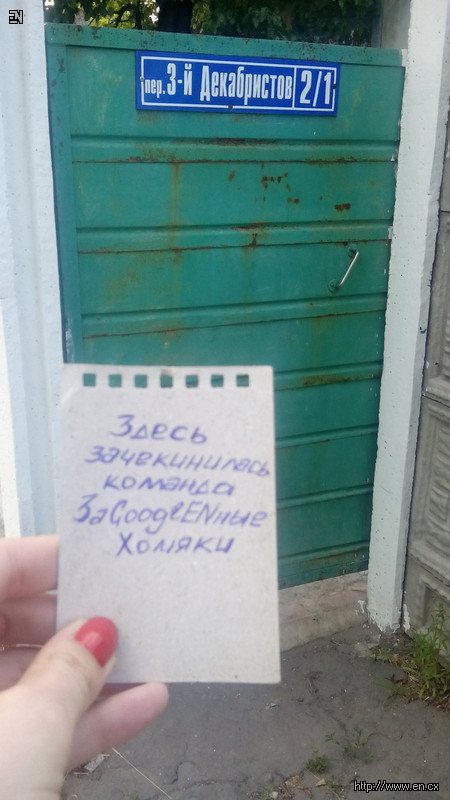 EN
пер. 3-й Декабристов 2/1
Здесь
зачекинилась
команда
ЗаGooglENные
Хомяки
http://www.en.cx